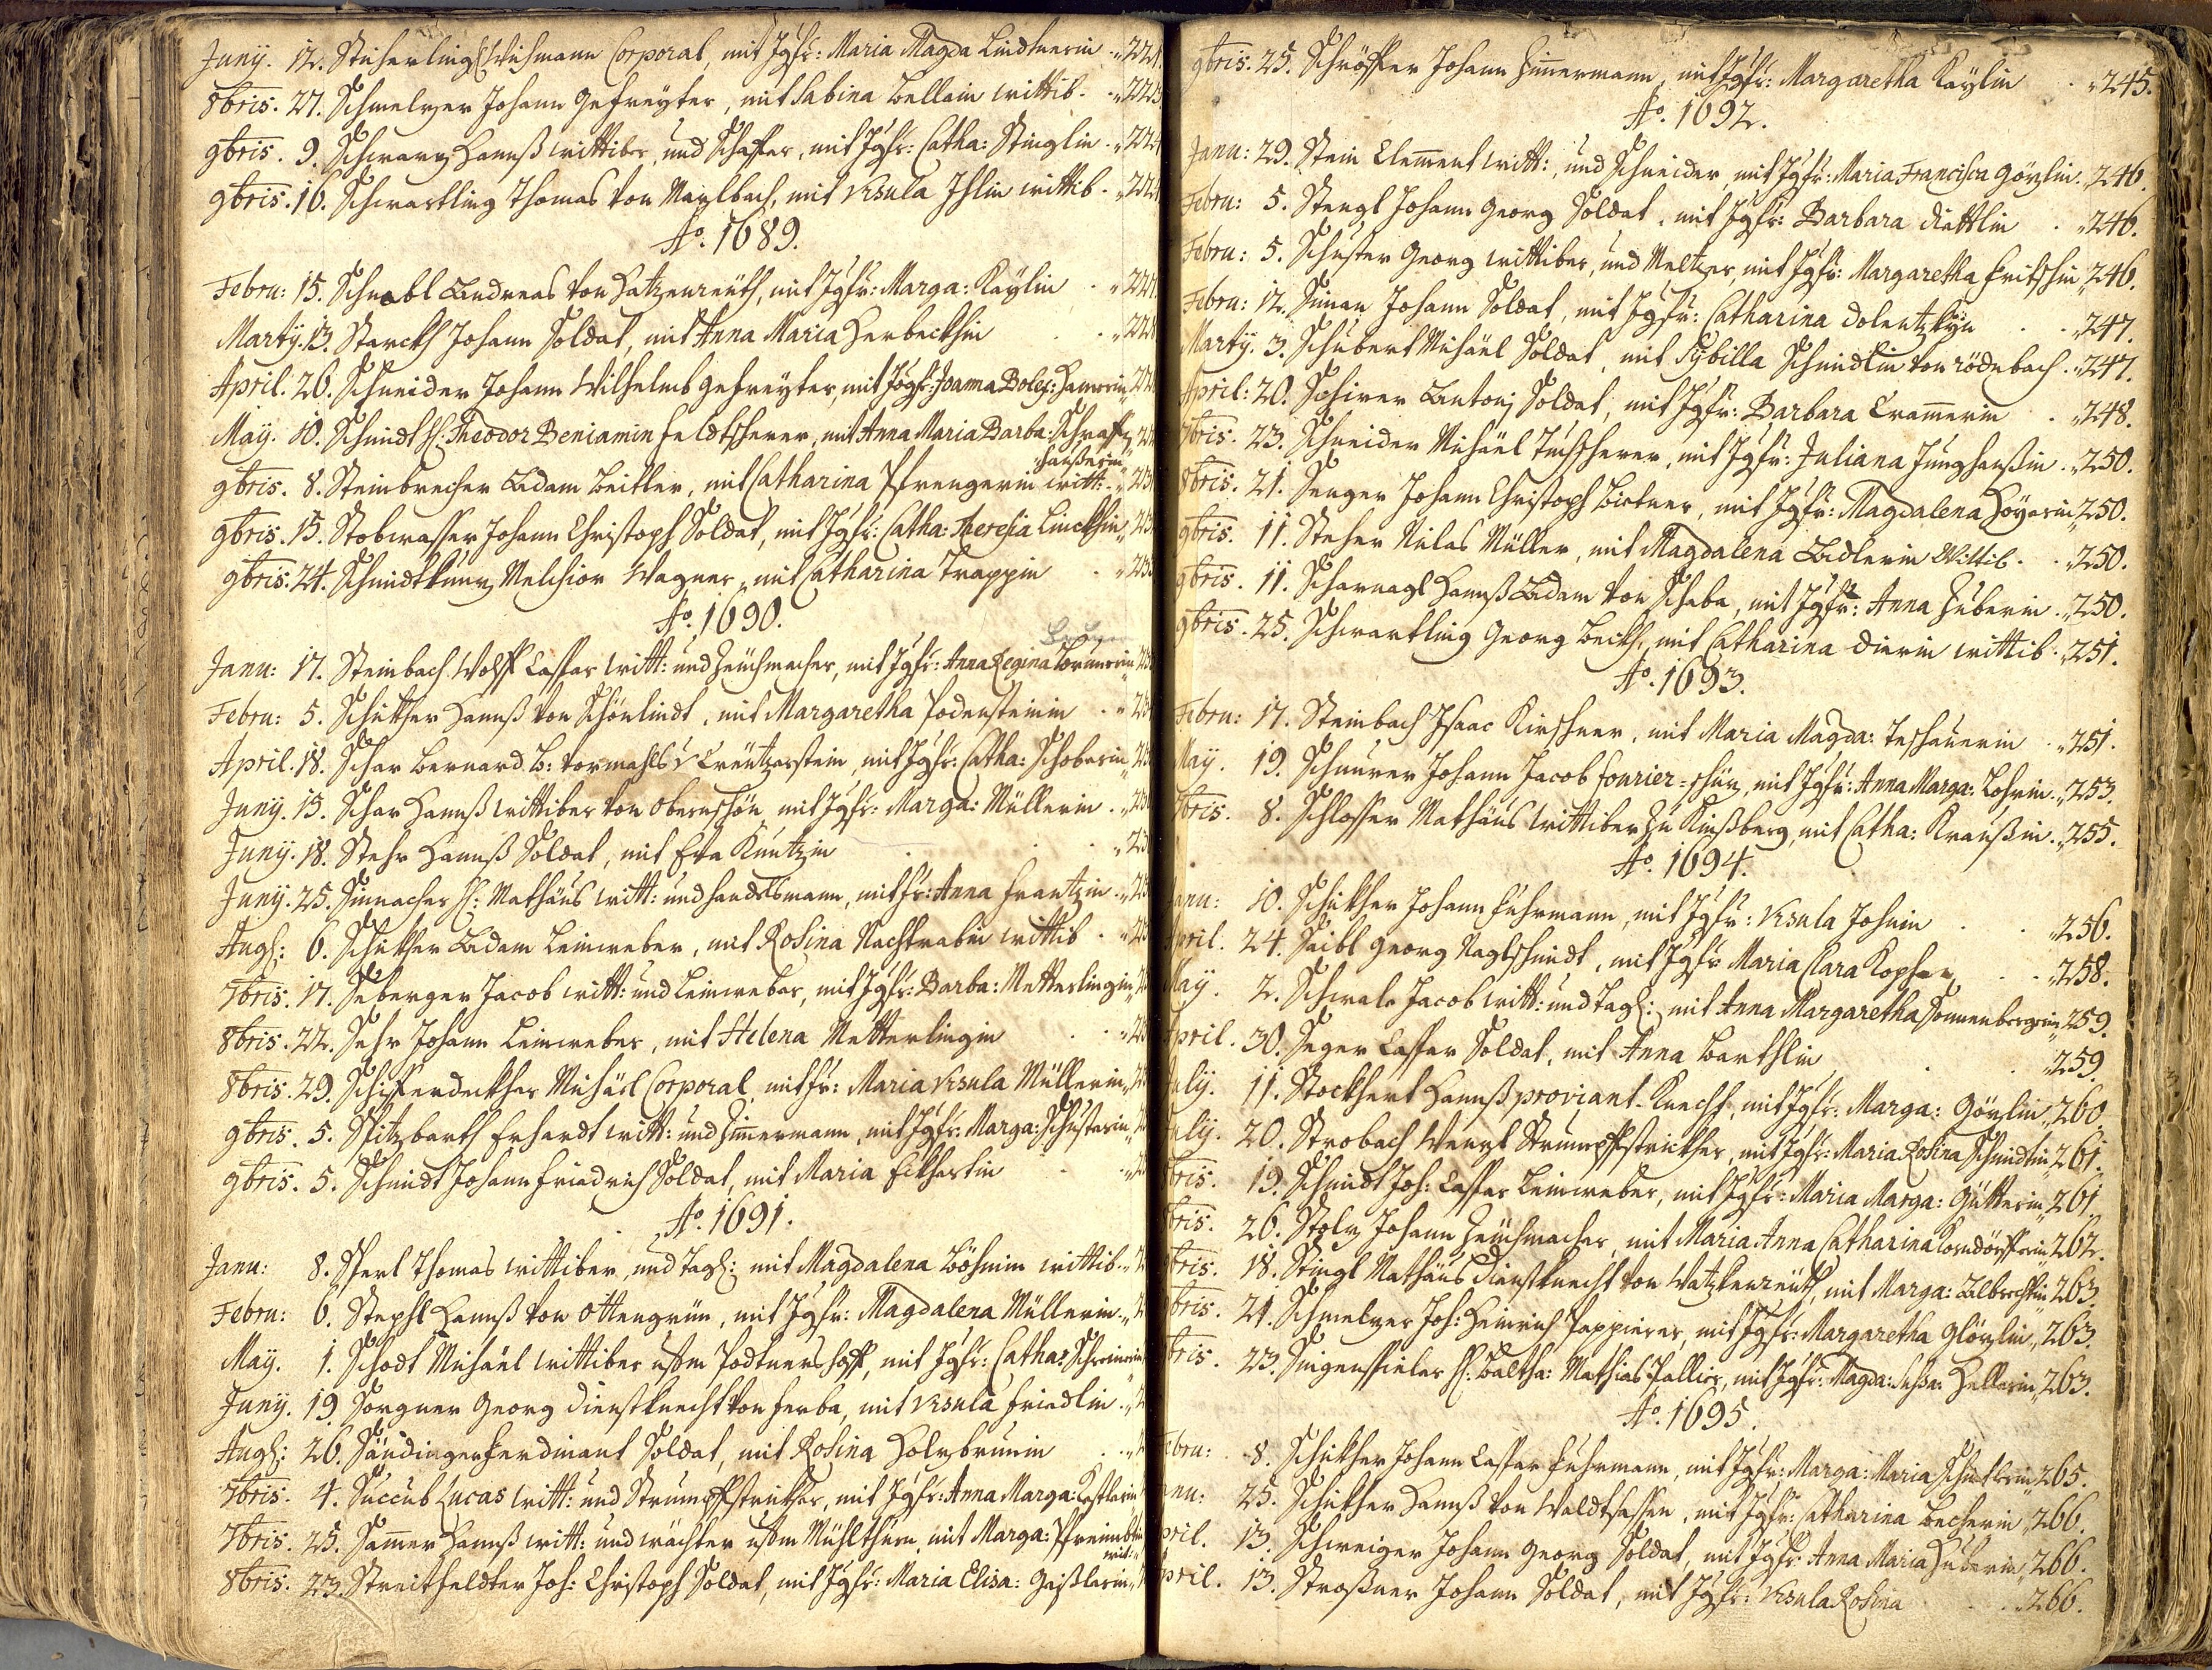 Junÿ. 12. Stuherlingk Wiehmann Corporal, mit Jgfr: Maria Magda Lindtnerin „221.
8bris. 27. Schmelzer Johann Gefreyter, mit Sabina Bellain wittib. „223
9bris. 9. Schwarz Hannß wittiber, und Schaffer, mit Jgfr: Catha: Stinglin. „224
9bris. 16. Schwartling Thomas von Maylbach, mit Ursula Ihlin wittib. „224
Ao. 1689.
Febru: 15. Schnabl Andreas von Hatzenreuth, mit Jgfr: Marga: Kaÿlin „227.
Martÿ. 13. Starckh Johann Soldat, mit Anna Maria Herbeckhin „228
April. 26. Schneider Johann Wilhelmb Gefreyter, mit Jgfr: Joanna Boles: Hamerin „22
Maÿ. 10. Schmidt H: Theodor Beniamin Feldtscherer, mit Anna Maria Barba: Schraff „22
haußerin
9bris. 8. Steinbrecher Adam Beitler, mit Catharina Pfrengerin witt: „23
9bris. 15. Stobwasser Johann Christoph Soldat, mit Jgfr: Catha: Theresia Linckhin „23
9bris. 24. Schmidtkunz Melchior Wagner, mit Catharina Trappin „233
Ao. 1690.
Janu: 17. Steinbach Wolff Casper witt: und Zeuchmacher, mit Jgfr: Anna Regina Brunerin „23
Febru: 5. Schukher Hannß von Schönlindt, mit Margaretha Podensteinin „23
April. 18. Schar Bernard B: vormahls v Creutzerstein, mit Jgfr: Catha: Schoberin „23
Junÿ. 15. Schar Hannß wittiber von Obernschön, mit Jgfr: Marga: Müllerin „23
Junÿ. 18. Stehr Hannß Soldat, mit Eva Kuntzin „23
Junÿ. 25. Sinnacher H: Mathäus witt: und handelsmann, mit fr: Anna Frantzin „23
Augs: 6. Schukher Adam Leinweber, mit Rosina Nachtrabin wittib „23
7bris. 17. Seberger Jacob witt: und Leinweber, mit Jgfr: Barba: Metterlingin „2
8bris. 22. Sehr Johann Leinweber, mit Helena Metterlingin „2
8bris. 29. Schifferdeckher Michäel Corporal, mit fr: Maria Ursula Müllerin „2
9bris. 5. Spitzbarth Erhardt witt: und Zimmermann, mit Jgfr: Marga: Schusterin „2
9bris. 5. Schmidt Johann Friedrich Soldat, mit Maria Eckhartin „2
Ao. 1691.
Janu: 8. Sperl Thomas wittiber, und Tagl: mit Magdalena Böhmin wittib. „2
Febru: 6. Stephl Hannß von Ottengrün, mit Jgfr: Magdalena Müllerin „2
Maÿ. 1. Schodt Michäel wittiber ufm Podtnershoff, mit Jgfr: Catha: Schreinerin
Junÿ. 19. Sorgner Georg Dienstknecht von Ferba, mit Ursula Friedlin „2
Augs: 26. Sändinger Ferdinant Soldat, mit Rosina Holzbrunin
7bris. 4. Succub Lucas witt: und Strumpfstrickher, mit Jgfr: Anna Marga: Castlerin
7bris. 25. Samer Hannß witt: und wächter ufm Mühlthurn, mit Marga: Pfreimbtin
witt:
8bris. 23. Streitfeldter Joh: Christoph Soldat, mit Jgfr: Maria Elisa: Geißlerin
9bris. 25. Schröffer Johann Zimmermann, mit Jgfr: Margaretha Kaÿlin „245.
Ao. 1692.
Janu: 29. Stein Clement witt: und Schneider, mit Jgfr: Maria Francisca Görzlin. „246.
Febru: 5. Stengl Johann Georg Soldat, mit Jgfr: Barbara Diettlin „246.
Febru: 5. Schuster Georg wittiber, und Meltzer, mit Jgfr: Margaretha Fritschin „246.
Febru: 12. Siman Johann Soldat, mit Jgfr: Catharina Dolentzkÿn „247.
Martÿ. 3. Schubert Michäel Soldat, mit Sÿbilla Schmidlin von Rödnbach „247.
April: 20. Schirer Antonj Soldat, mit Jgfr: Barbara Cramerin „248.
7bris. 23. Schneider Michäel Tuchscherer, mit Jgfr: Juliana Junghanßin „250.
8bris. 21. Senger Johann Christoph Bietner, mit Jgfr: Magdalena Hoÿerin „250.
9bris. 11. Steher Niclas Müller, mit Magdalena Adlerin Wittib. „250.
9bris. 11. Scharnagl Hannß Adam von Schaba, mit Jgfr: Anna Huberin „250.
9bris. 25. Schwartling Georg Beckh, mit Catharina Dierin wittib. „251.
Ao. 1693.
Febru: 17. Steinbach Isaac Kirschner, mit Maria Magda: Teschauerin „251.
Maÿ. 19. Schnurer Johann Jacob Fourier-schüz, mit Jgfr: Anna Marga: Lohrin „253.
7bris. 8. Schlosser Mathäus wittiber zu Kinßberg, mit Catha: Kraußin „255.
Ao. 1694.
Janu: 10. Schukher Johann Fuhrmann, mit Jgfr: Ursula Johnin „256.
April. 24. Saibl Georg Naglschmidt, mit Jgfr Maria Clara Kopfin „258.
Maÿ. 2. Schwalr Jacob witt: und Tagl: mit Anna Margaretha Sonnenbergerin „259.
April. 30. Seger Casper Soldat, mit Anna Barthlin „259.
Julÿ. 11. Stockhert Hannß Proviant-Knecht, mit Jgfr: Marga: Görzlin „260.
Julÿ. 20. Strobach Wenzl Strumpfstrickher, mit Jgfr: Maria Rosina Schmidtin „261.
bris. 19. Schmidt Joh: Casper Leinweber, mit Jgfr: Maria Marga: Gütterin „261.
bris. 26. Stolz Johann Zeuchmacher, mit Maria Anna Catharina Korndörfferin „262.
bris. 18. Stingl Mathäus Dienstknecht von Watzkenreuth, mit Marga: Albrechtin „263.
bris. 21. Schmelzer Joh: Heinrich Pappierer, mit Jgfr: Margaretha Glözlin „263.
bris. 23. Suigenspieler H: Baltha: Mathias Pallier, mit Jgfr: Magda: Susa: Hellerin „263.
Ao. 1695.
Febru: 8. Schukher Johann Casper Fuhrmann, mit Jgfr: Marga: Maria Schindtlerin „265.
Janu: 25. Schukher Hannß von Waldtsassen, mit Jgfr: Catharina Becherin „266.
April. 13. Schweiger Johann Georg Soldat, mit Jgfr: Anna Maria Huberin „266.
April. 13. Stroßner Johann Soldat, mit Jgfr: Ursula Rosina „266.